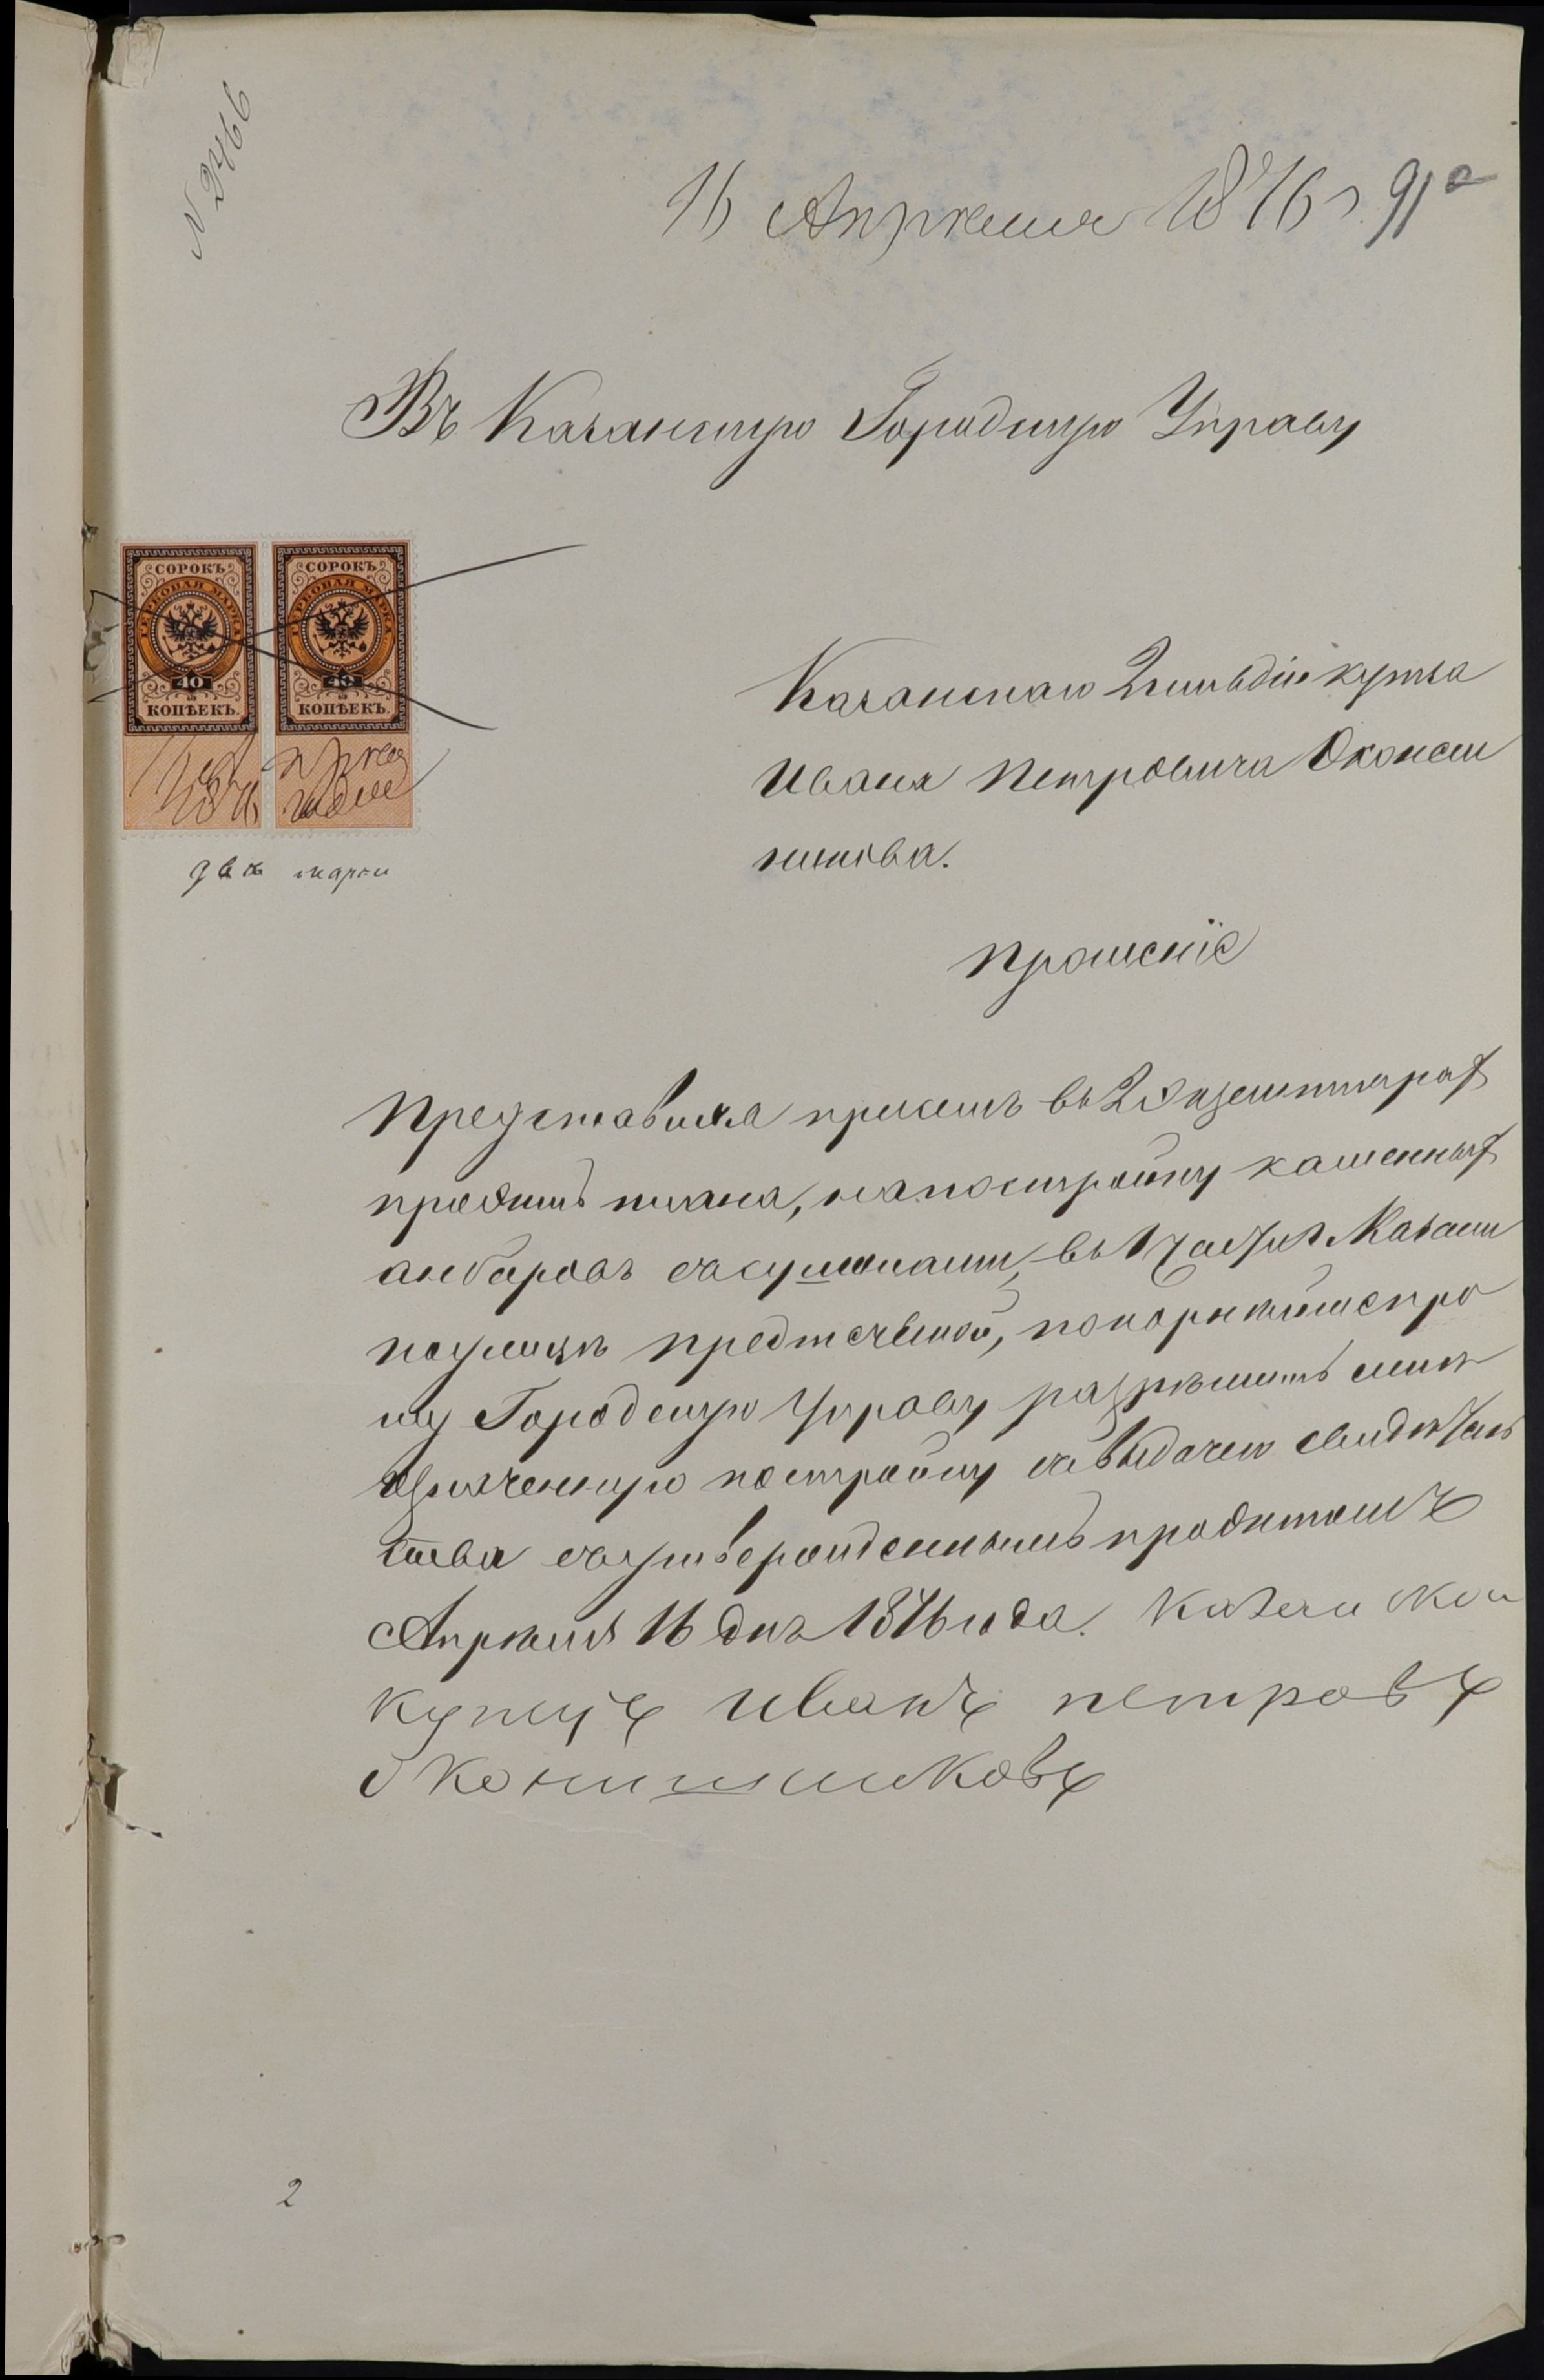 N 2466
16 Апрѣля 1876 г. 91
Въ Казанскую Городскую Управу
СОРОКЪ СОРОКЪ
ГЕРБОВАЯ МАРКА ГЕРБОВАЯ МАРКА
40 40
КОПѢЕКЪ. КОПѢЕКЪ.
1876
двѣ марки
Казанскаго 2 гильдіи купца
Ивана Петровича Оконеш
никова.
Прошеніе
Представляя присемъ въ 2 экземплярах
проэктъ плана, на постройку каменных
анбаровъ, въ 1 части г. Казани
поулицѣ предтечевской, покорнѣйше про
шу Городскую Управу разрѣшить мнѣ
означенную постройку свыдачею свидѣтель
ства сутвержденнымъ проэктомъ
Апрѣля 16 дня 1876 года. Казанской
купецъ Иванъ петровъ
Оконишниковъ
2